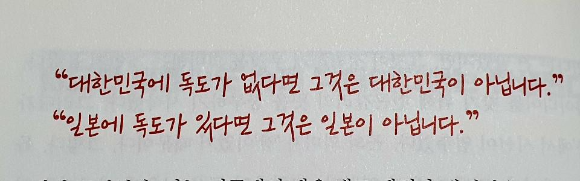 “대한민국에 독도가 없다면 그것은 대한민국이 아닙니다.”
“일본에 독도가 있다면 그것은 일본이 아닙니다.”